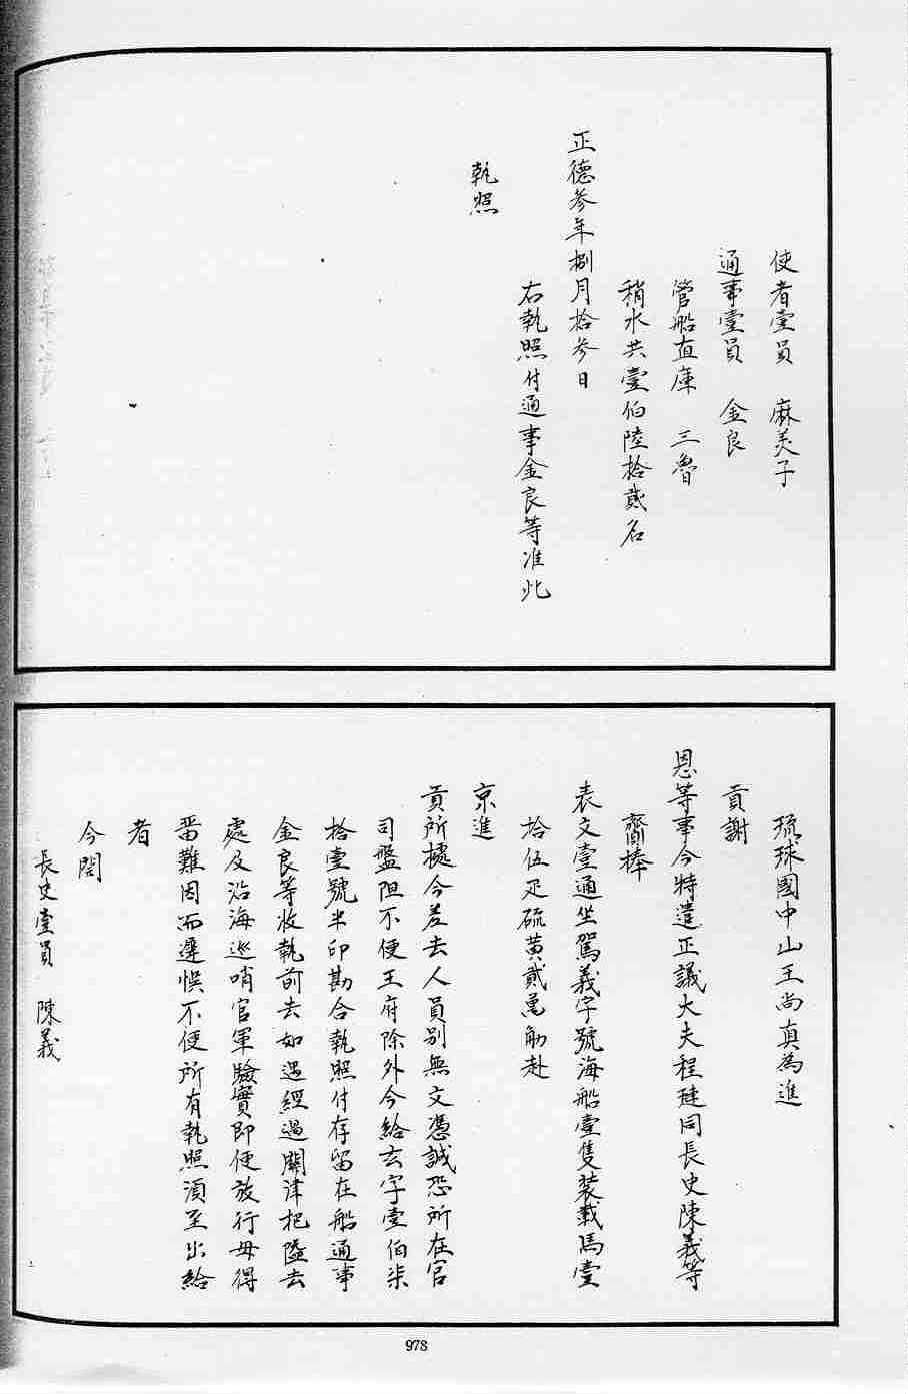 使者壹員　麻美子
通事壹員　金良
管船直庫　三魯
稍水共壹伯陸拾貳名
正德參年捌月拾參日
右執照付通事金良等准此
執照
琉球國中山王尚真為進
貢謝
恩等事今特遣正議大夫程璉同長史陳義等
齎捧
表文壹通坐駕義字號海船壹隻裝載馬壹
拾伍疋硫黃貳萬觔赴
京進
貢所據今差去人員別無文憑誠恐所在官
司盤阻不便王府除外今給玄字壹伯柒
拾壹號半印勘合執照付存留在船通事
金良等收執前去如遇經過關津把隘去
處及沿海巡哨官軍驗實即便放行毋得
留難因而遲悞不便所有執照須至出給
者
今開
長史壹員　陳義
978